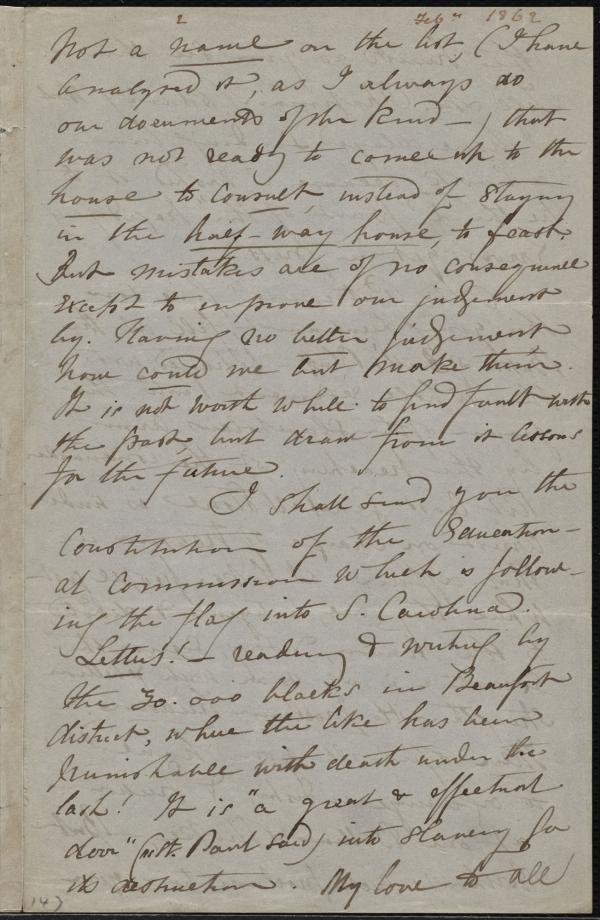 2 Feby 1862
Not a name on the list, (I have
analysed it, as I always do
our documents of the kind—) that
was not ready to come up to the
house to consult, instead of staying
in the half-way house, to feast.
But mistakes are of no consequence
except to improve our judgement
by. Having no better judgement,
how could we but make them.
It is not worth while to find fault with
the past, but draw from it lessons
for the future.
I shall send you the
Constitution of the Education-
al Commission which is follow-
ing the flag into S. Carolina.
Letters! — reading & writing by
the 30.000 blacks in Beaufort
district, where the like has been
punishable with death under the
lash! It is "a great & effectual
door" (as St. Paul said) into slavery for
its destruction. My love to all
147